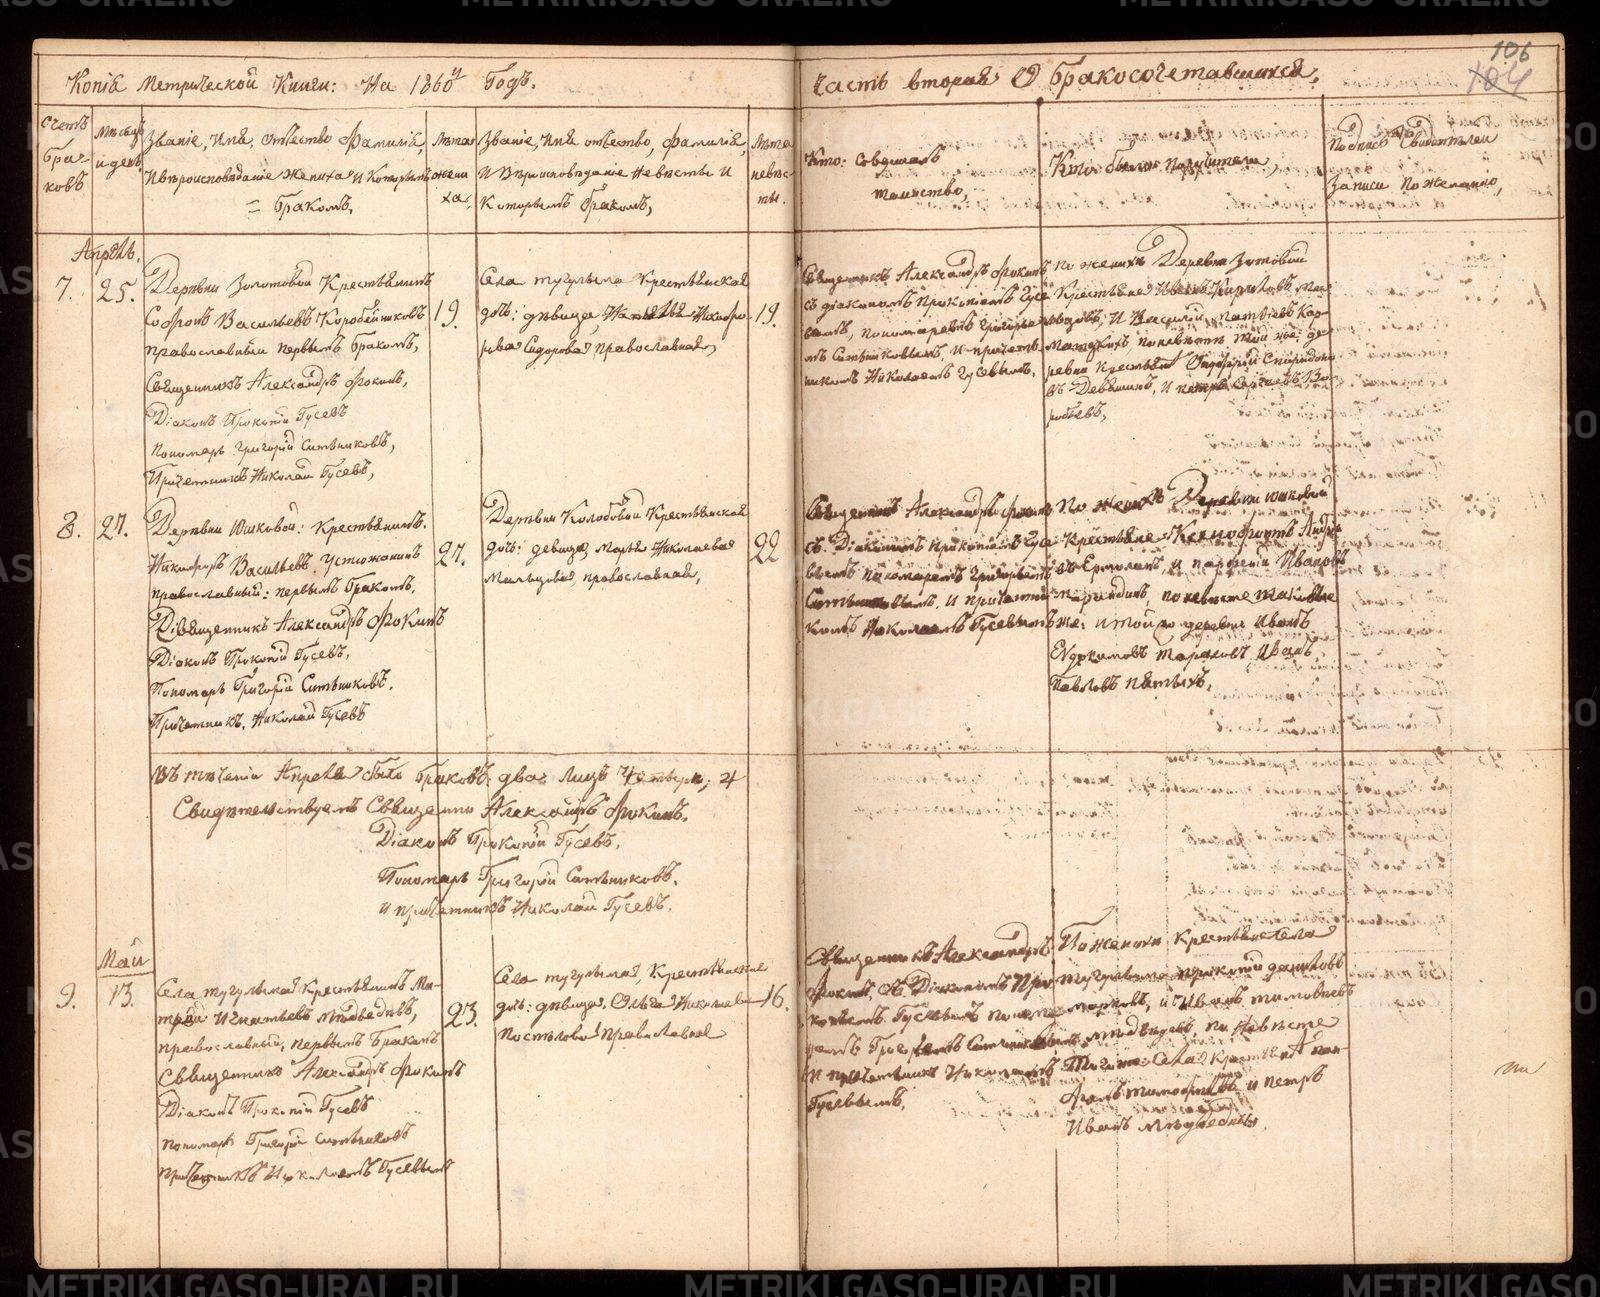 106
104
Копія Метрической Книги: На 1860й Годъ.
Часть вторая О бракосочетавшихся.
Счетъ
бра-
ковъ
Мѣсяцъ
и день
Званіе, Имя, отчество Фамилія,
И вѣроисповѣданіе Жениха И Которымъ
= бракомъ,
Лѣта
жени
ха,
Званіе, Имя отчество, фамилія,
И Вѣроисповѣданіе Невѣсты И
Которымъ бракомъ,
Лѣта
невѣс-
ты.
Кто: Совершалъ
таинство,
Кто были поручители,
Подпись Свидѣтелей
Записи по желанію,
Апрѣль.
7.
25.
Деревни Золотовой Крестьянинъ
Софронъ Васильевъ Коробейниковъ
православный первымъ бракомъ,
Священникъ Александръ Фокинъ,
Діаконъ Прокопій Гусевъ
пономарь Григорій Ситниковъ,
Причетникъ Николай Гусевъ,
19.
Села тугулыма Крестьянская
дочь: дѣвица,
Сидорова православная,
19.
Священникъ Александръ Фокинъ
съ діакономъ Прокопіемъ Гусе
вымъ, пономаремъ Григорье
мъ Ситниковымъ, И причет-
никомъ Николаемъ Гусевымъ.
По женихѣ Деревни Золотовой
Крестьяне Иванъ
И Василий Матвѣевъ Кор-
по невѣстѣ той же: де-
ревни Крестьяне
8.
27.
Деревни Юшковой: Крестьянинъ.
Никифоръ Васильевъ Устюжанинъ
православный: первымъ бракомъ,
Священникъ Александръ Фокинъ
Діаконъ Прокопій Гусевъ,
Пономарь Григорій Ситниковъ.
Причетникъ. Николай Гусевъ
27.
Деревни Колобовой Крестьянская
дочь: девица, Марья Николаева
Мальцова, православная,
22
Священникъ Александръ Фокинъ
съ Діакономъ Прокопіемъ Гусе
вымъ пономаремъ Григорьемъ
Ситниковымъ, И причетни
комъ Николаемъ Гусевымъ
По женихѣ Деревни юшковой
Крестьяне Ксенофонтъ Андре
въ Ермолинъ, и парфений Ивановъ
по невѣсте таковые
же: и той деревни Иванъ
Евдокимовъ Иванъ
Павловъ пятыхъ,
Въ течении Апреля было браковъ: два лицъ Четверо; 4
Свидѣтельствуемъ Священникъ Александръ Фокинъ.
Діаконъ Прокопій Гусевъ,
Пономарь Григорій Ситниковъ.
И причетникъ Николай Гусевъ.
Май
9.
13.
Села тугулыма Крестьянинъ Ми-
трій Игнатьевъ Медведевъ,
православный, первымъ бракомъ
Священникъ Александръ Фокинъ
Діаконъ Прокопій Гусевъ
пономарь Григорій Ситниковъ
причетникъ Николаемъ Гусевымъ
23.
Села тугулыма, Крестьянская
дочь: дѣвица, Ольга Николаева
Поспѣлова Православная
16.
Священникъ Александръ
Фокинъ, съ Діакономъ Про
копіемъ Гусевымъ понома
ремъ Григорьемъ Ситниковымъ
И причетникъ Николаемъ
Гусевымъ,
По женихѣ Крестьяне Села
тугулыма прокопій даниловъ
марковъ, и Иванъ тимофѣевъ
медведевъ, по Невѣсте
Того же: Села Крестьяне
и петръ
Иванъ Медведевы,
METRIKI.GASO-URAL.RU